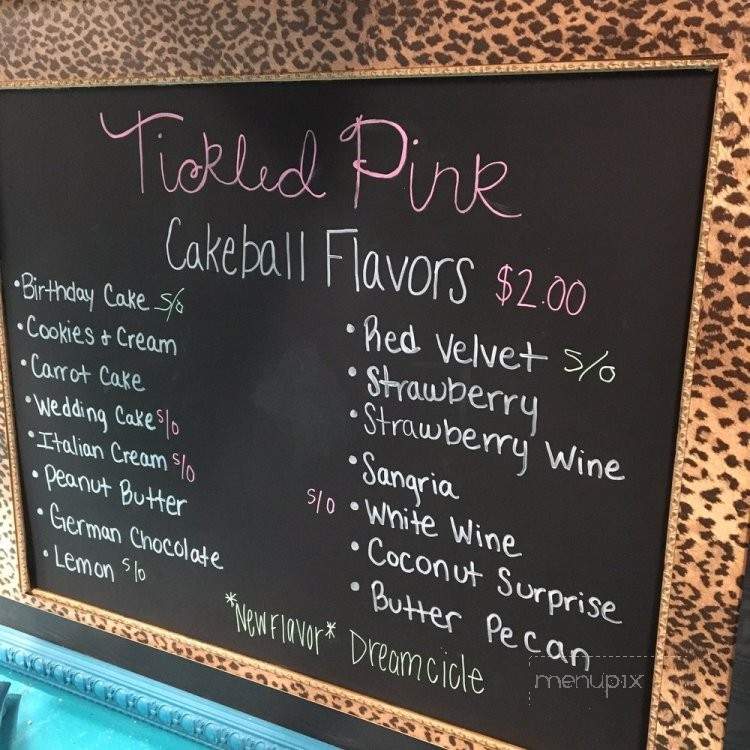 Tickled Pink
Cakeball Flavors $2.00
• Birthday Cake s/o
• Cookies & Cream
• Carrot Cake
• Wedding Cake s/o
• Italian Cream s/o
• Peanut Butter
• German Chocolate
• Lemon s/o
• Red Velvet s/o
• Strawberry
• Strawberry Wine
• Sangria
s/o • White Wine
• Coconut Surprise
• Butter Pecan
*New Flavor* Dreamcicle
menupix